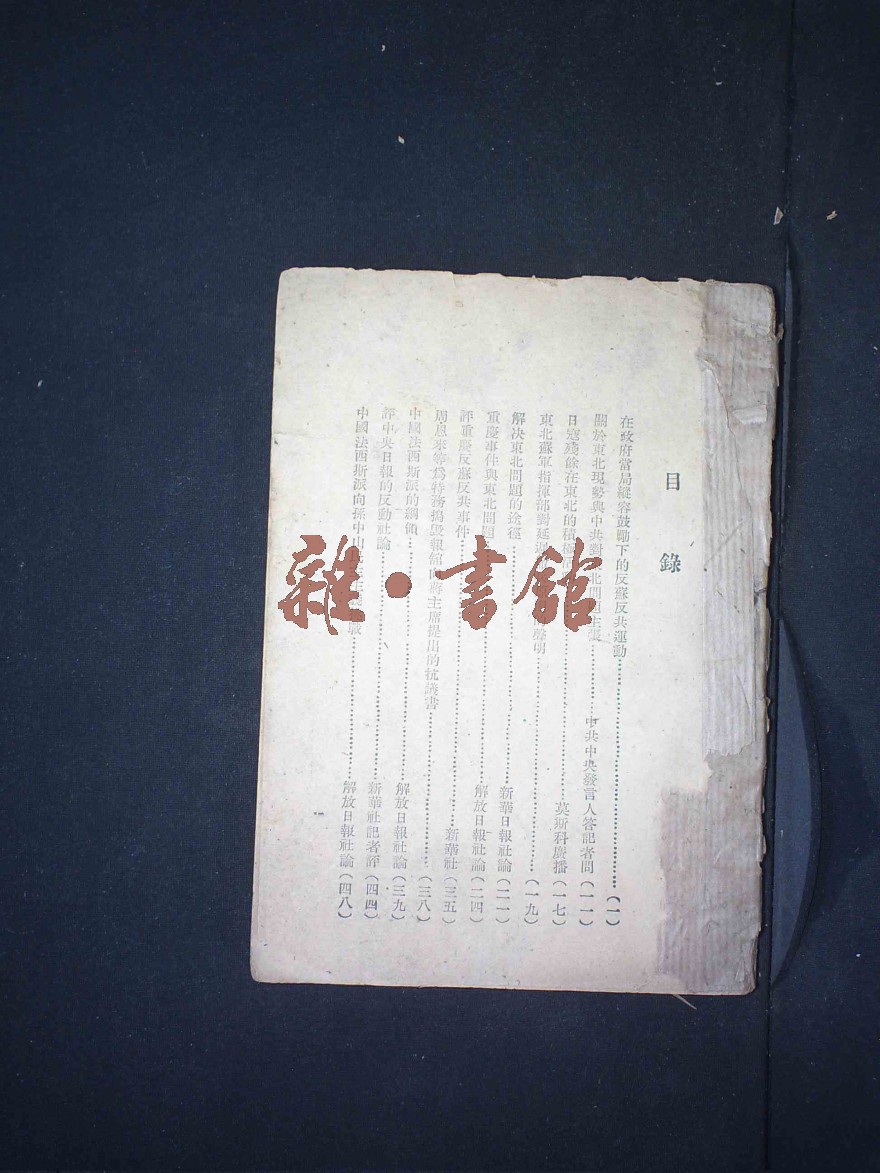 目錄
在政府當局縱容鼓勵下的反蘇反共運動……(一)
關於東北現勢與中共對東北問題主張……中共中央發言人答記者問(一一)
日寇殘餘在東北的積極……莫斯科廣播(一七)
東北蘇軍指揮部對延遲 聲明……(一九)
解決東北問題的途徑……新華日報社論(二一)
重慶事件與東北問題……解放日報社論(二四)
評重慶反蘇反共事件……新華社(三五)
周恩來等爲特務搗毀報館向蔣主席提出的抗議書……(三八)
中國法西斯派的綱領……解放日報社論(三九)
評中央日報的反動社論……新華社記者評(四四)
中國法西斯派向孫中山……解放日報社論(四八)
雜·書館